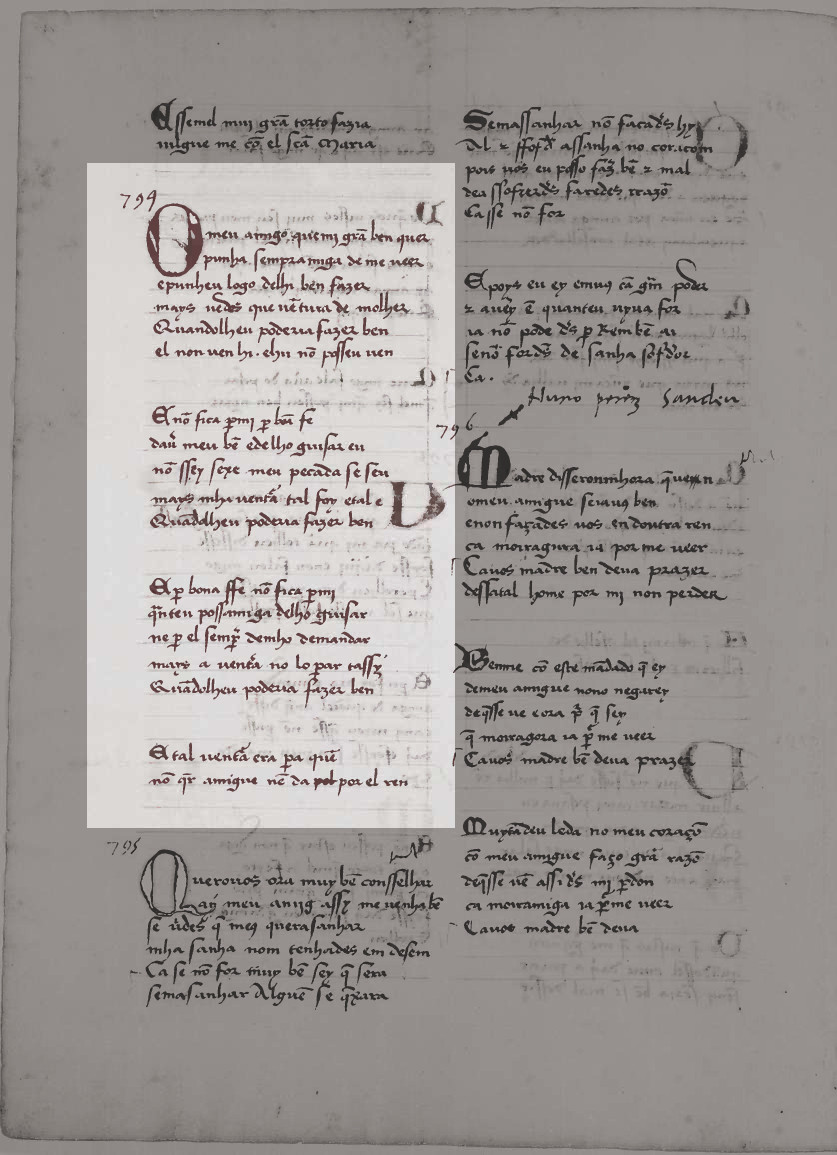 E ssemel mui grã torto fazia
nugue me cõ el scã Maria
794
O meu amigo quemi grã ben quer
punha sempramiga de me veer
epunheu logo delhi ben fazer
mays vedes que uẽtura de molher
Quandolheu poderia fazer ben
el non uen hi . ehu nõ posseu uen
E nõ fica pmi p bõa fe
dau meu bẽ edelho guisar eu
nõ ssey sexe meu pecada se seu
mays mha uentã tal foy etal e
Quãdolheu poderia fazer ben
E p bona ffe nõ fica pmi
quãteu possamiga delho guisar
nẽ p el sempr demho demandar
mays a uentã no lo par tassy
Quãdolheu poderia fazer ben
E tal uentã era pa quẽ
nõ qr amigue nẽ da pol por el ren
795
Querouos ora muy bẽ consselhar
ay meu amig assy me uenha bẽ
se udes q̃ meq̃ querasanhar
mha sanha nom tenhades em desem
Ca se nõ for muy bẽ sey q̃ sera
semasanhar Alguẽ se q̃xara
Semassanhar nõ facads hy
Al z ssofrd assanha no coraçom
pois uos eu posso faz bẽ z mal
dea ssofrerds facedes razõ
Ca sse nõ for
E poys eu ey emuq cã grm poder
z auey ẽ quanteu uyua for
ia nõ pode ds p Rem bẽ au
senõ fords de sanha sofrdor
Ca .
Nuno perez Sandeu
796
Madre disseronmhora que uen
omeu amigue seiauq ben
enon façades uos en doutra ren
ca moiragura ia por me ueer
Cauos madre ben deua prazer
dessatal home por mi non perder
Venme cõ este mãdado q̃ ey
demeu amigue nono negarey
deq̃sse ue eora p q̃ sey
q̃ moiragora ia p me ueer
Cauos madre bẽ deua prazer
Muytãdeu leda no meu coraçõ
cõ meu amigue faço grã razõ
deq̃sse uẽ assi ds mi pdon
ca moiramiga ia pme ueer
Cauos madre bẽ deua